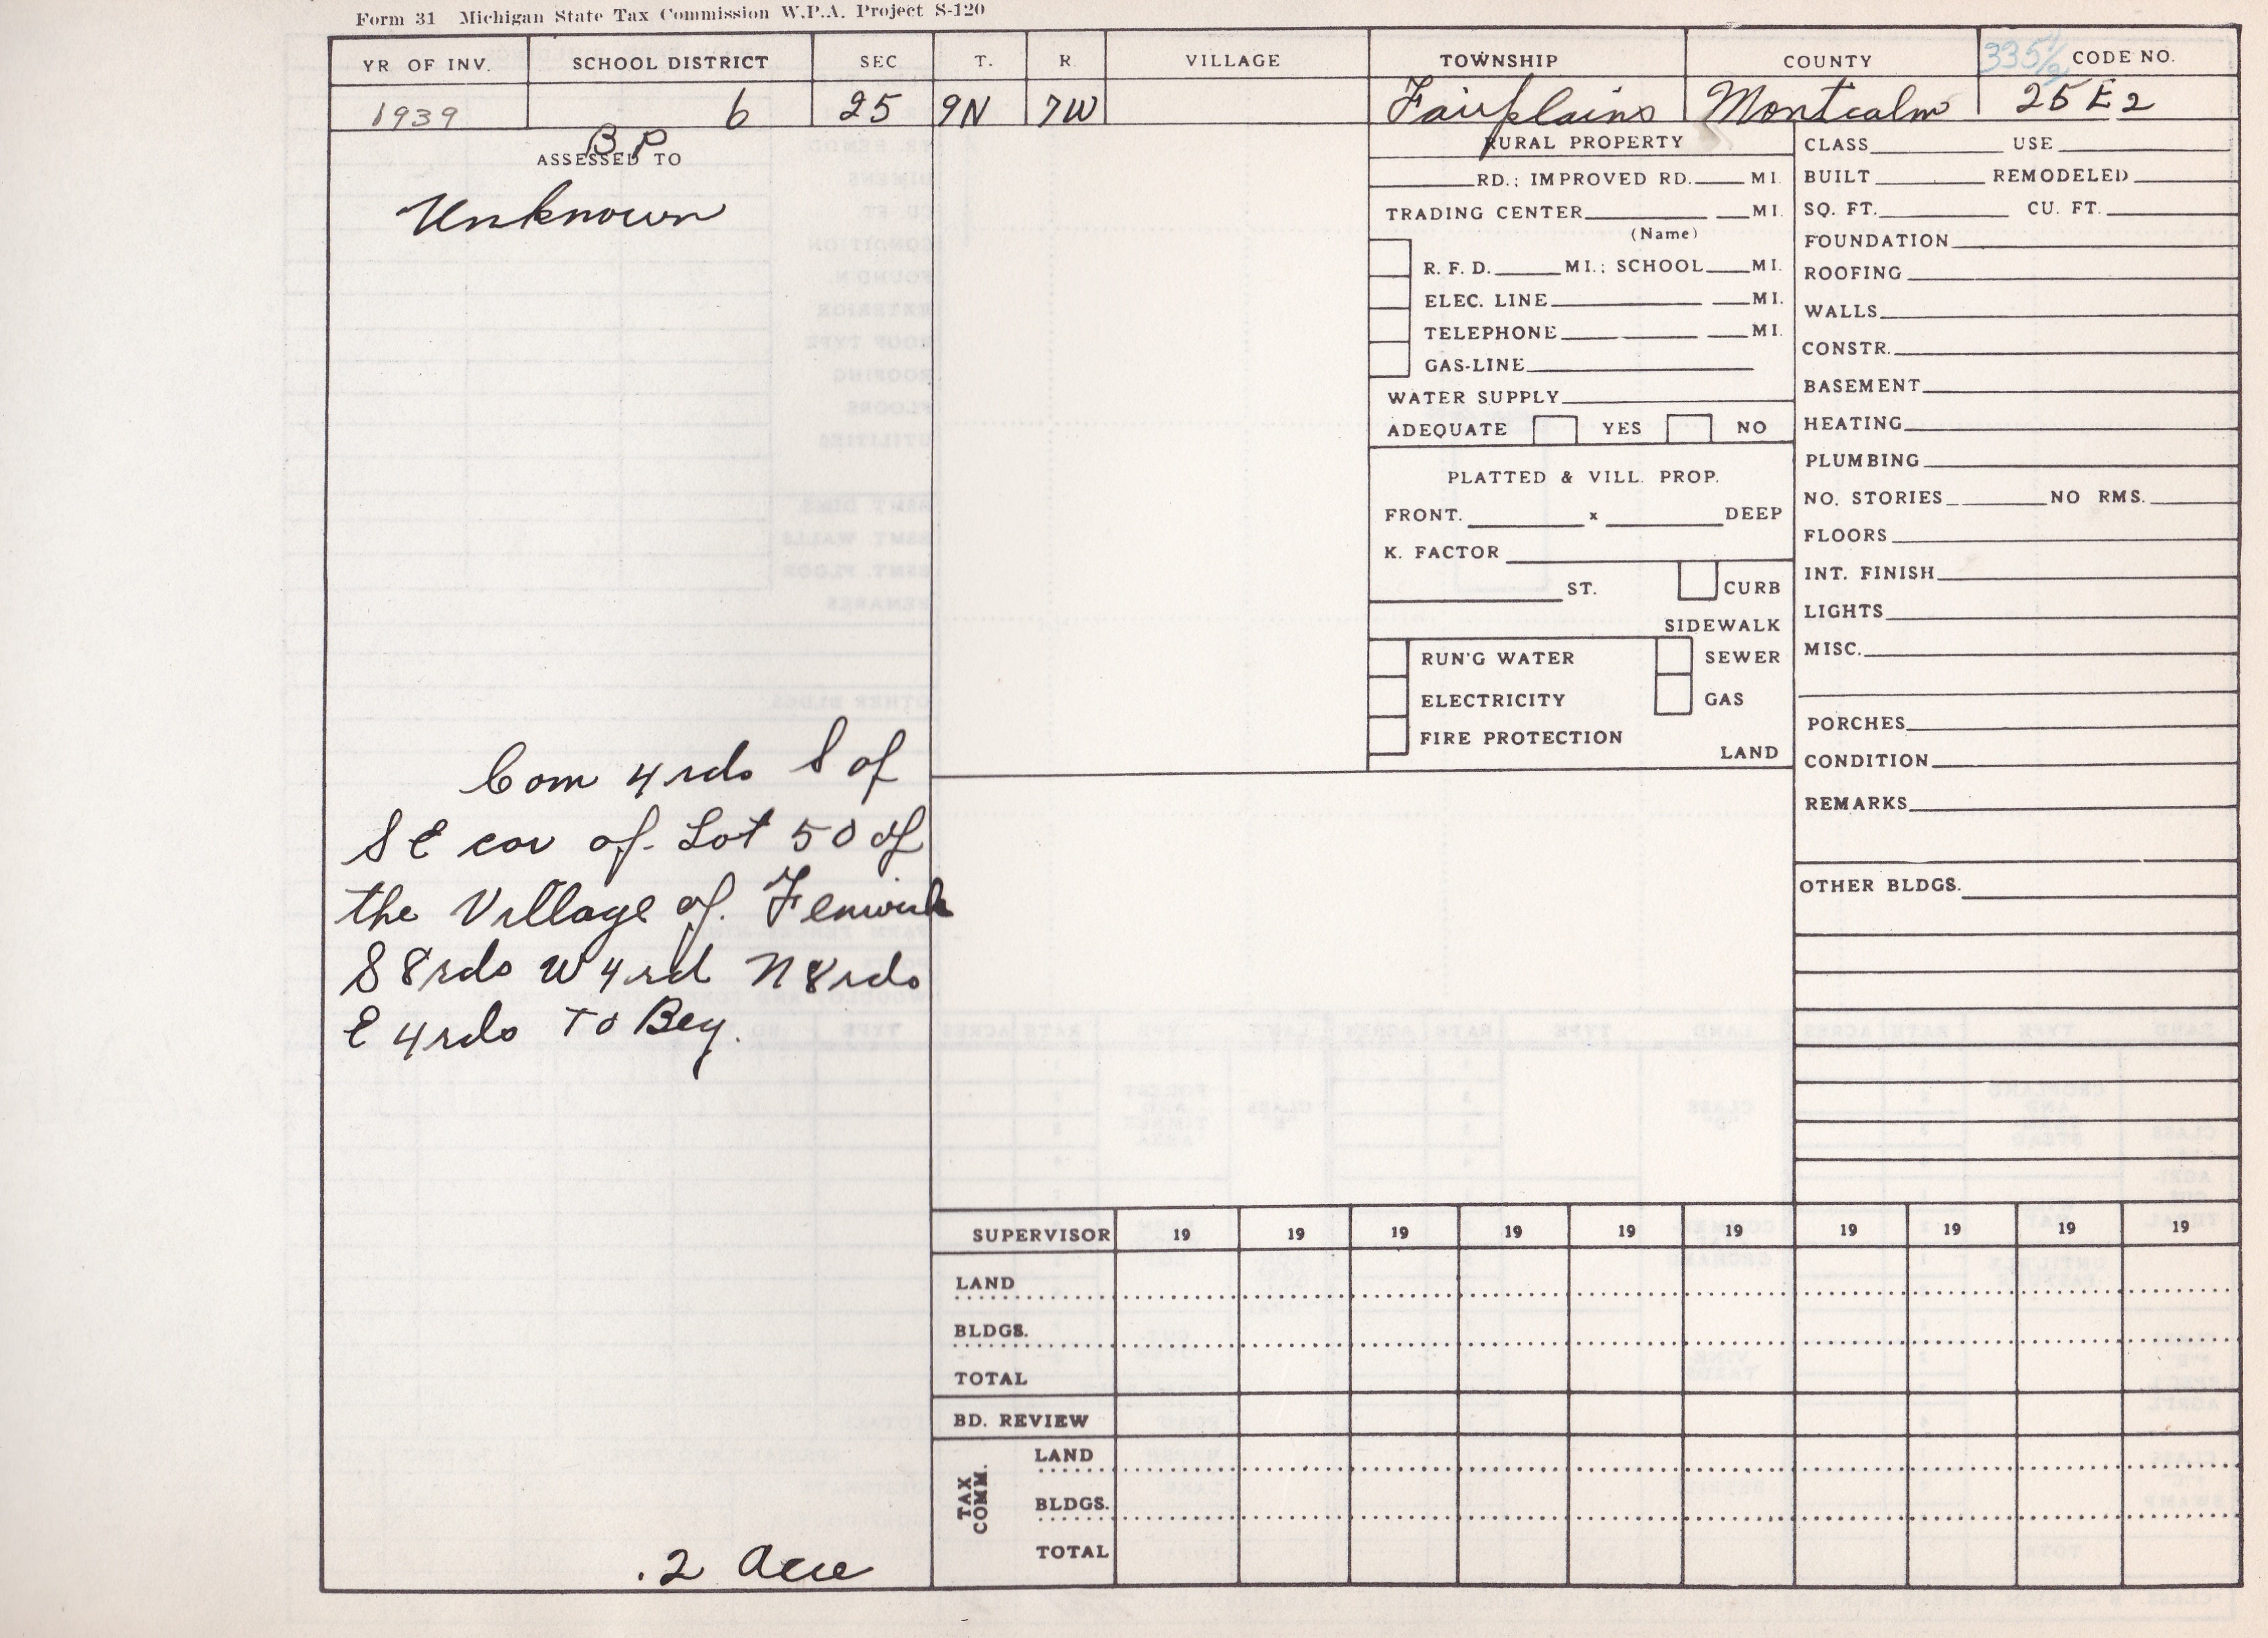 Form 31 Michigan State Tax Commission W.P.A. Project S-120
YR OF INV. SCHOOL DISTRICT SEC T. R VILLAGE TOWNSHIP COUNTY 335 1/2 CODE NO.
1939 6 25 9N 7W Fairplains Montcalm 25 E 2
B P
ASSESSED TO
Unknown
Com 4 rds S of
S E cor of Lot 50 of
the Village of Fenwick
S 8 rds W 4 rd N 8 rds
E 4 rds To Beg.
.2 Acre
RURAL PROPERTY
RD.; IMPROVED RD. MI.
TRADING CENTER MI.
(Name)
R. F. D. MI.; SCHOOL MI.
ELEC. LINE MI.
TELEPHONE MI.
GAS-LINE
WATER SUPPLY
ADEQUATE YES NO
PLATTED & VILL. PROP.
FRONT. x DEEP
K. FACTOR
ST. CURB
SIDEWALK
RUN'G WATER SEWER
ELECTRICITY GAS
FIRE PROTECTION
LAND
CLASS USE
BUILT REMODELED
SQ. FT. CU. FT.
FOUNDATION
ROOFING
WALLS
CONSTR.
BASEMENT
HEATING
PLUMBING
NO. STORIES NO RMS.
FLOORS
INT. FINISH
LIGHTS
MISC.
PORCHES
CONDITION
REMARKS
OTHER BLDGS.
SUPERVISOR 19 19 19 19 19 19 19 19 19 19
LAND
BLDGS.
TOTAL
BD. REVIEW
TAX COMM.
LAND
BLDGS.
TOTAL